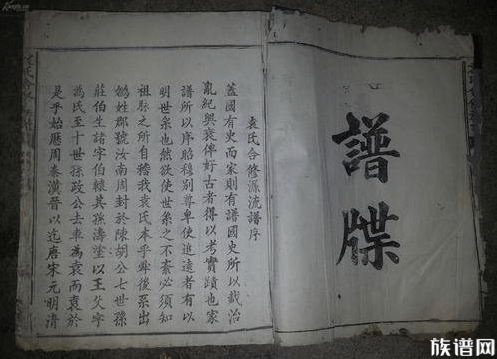 譜牒
袁氏合修源流譜序
蓋國有史而家則有譜國史所以裁治
亂紀興衰俾好古者得以考實蹟也家
譜所以序昭穆別尊卑使追遠者有以
明世系也然欲使世系之不紊必須知
祖脉之所自稽我袁氏本乎舜後系出
媯姓郡號汝南周封於陳胡公七世孫
莊伯生諸字伯轅其孫濤塗以王父字
爲氏至十世孫政公去車爲袁而袁於
是乎始歷周秦漢晉以迄唐宋元明清
族谱网